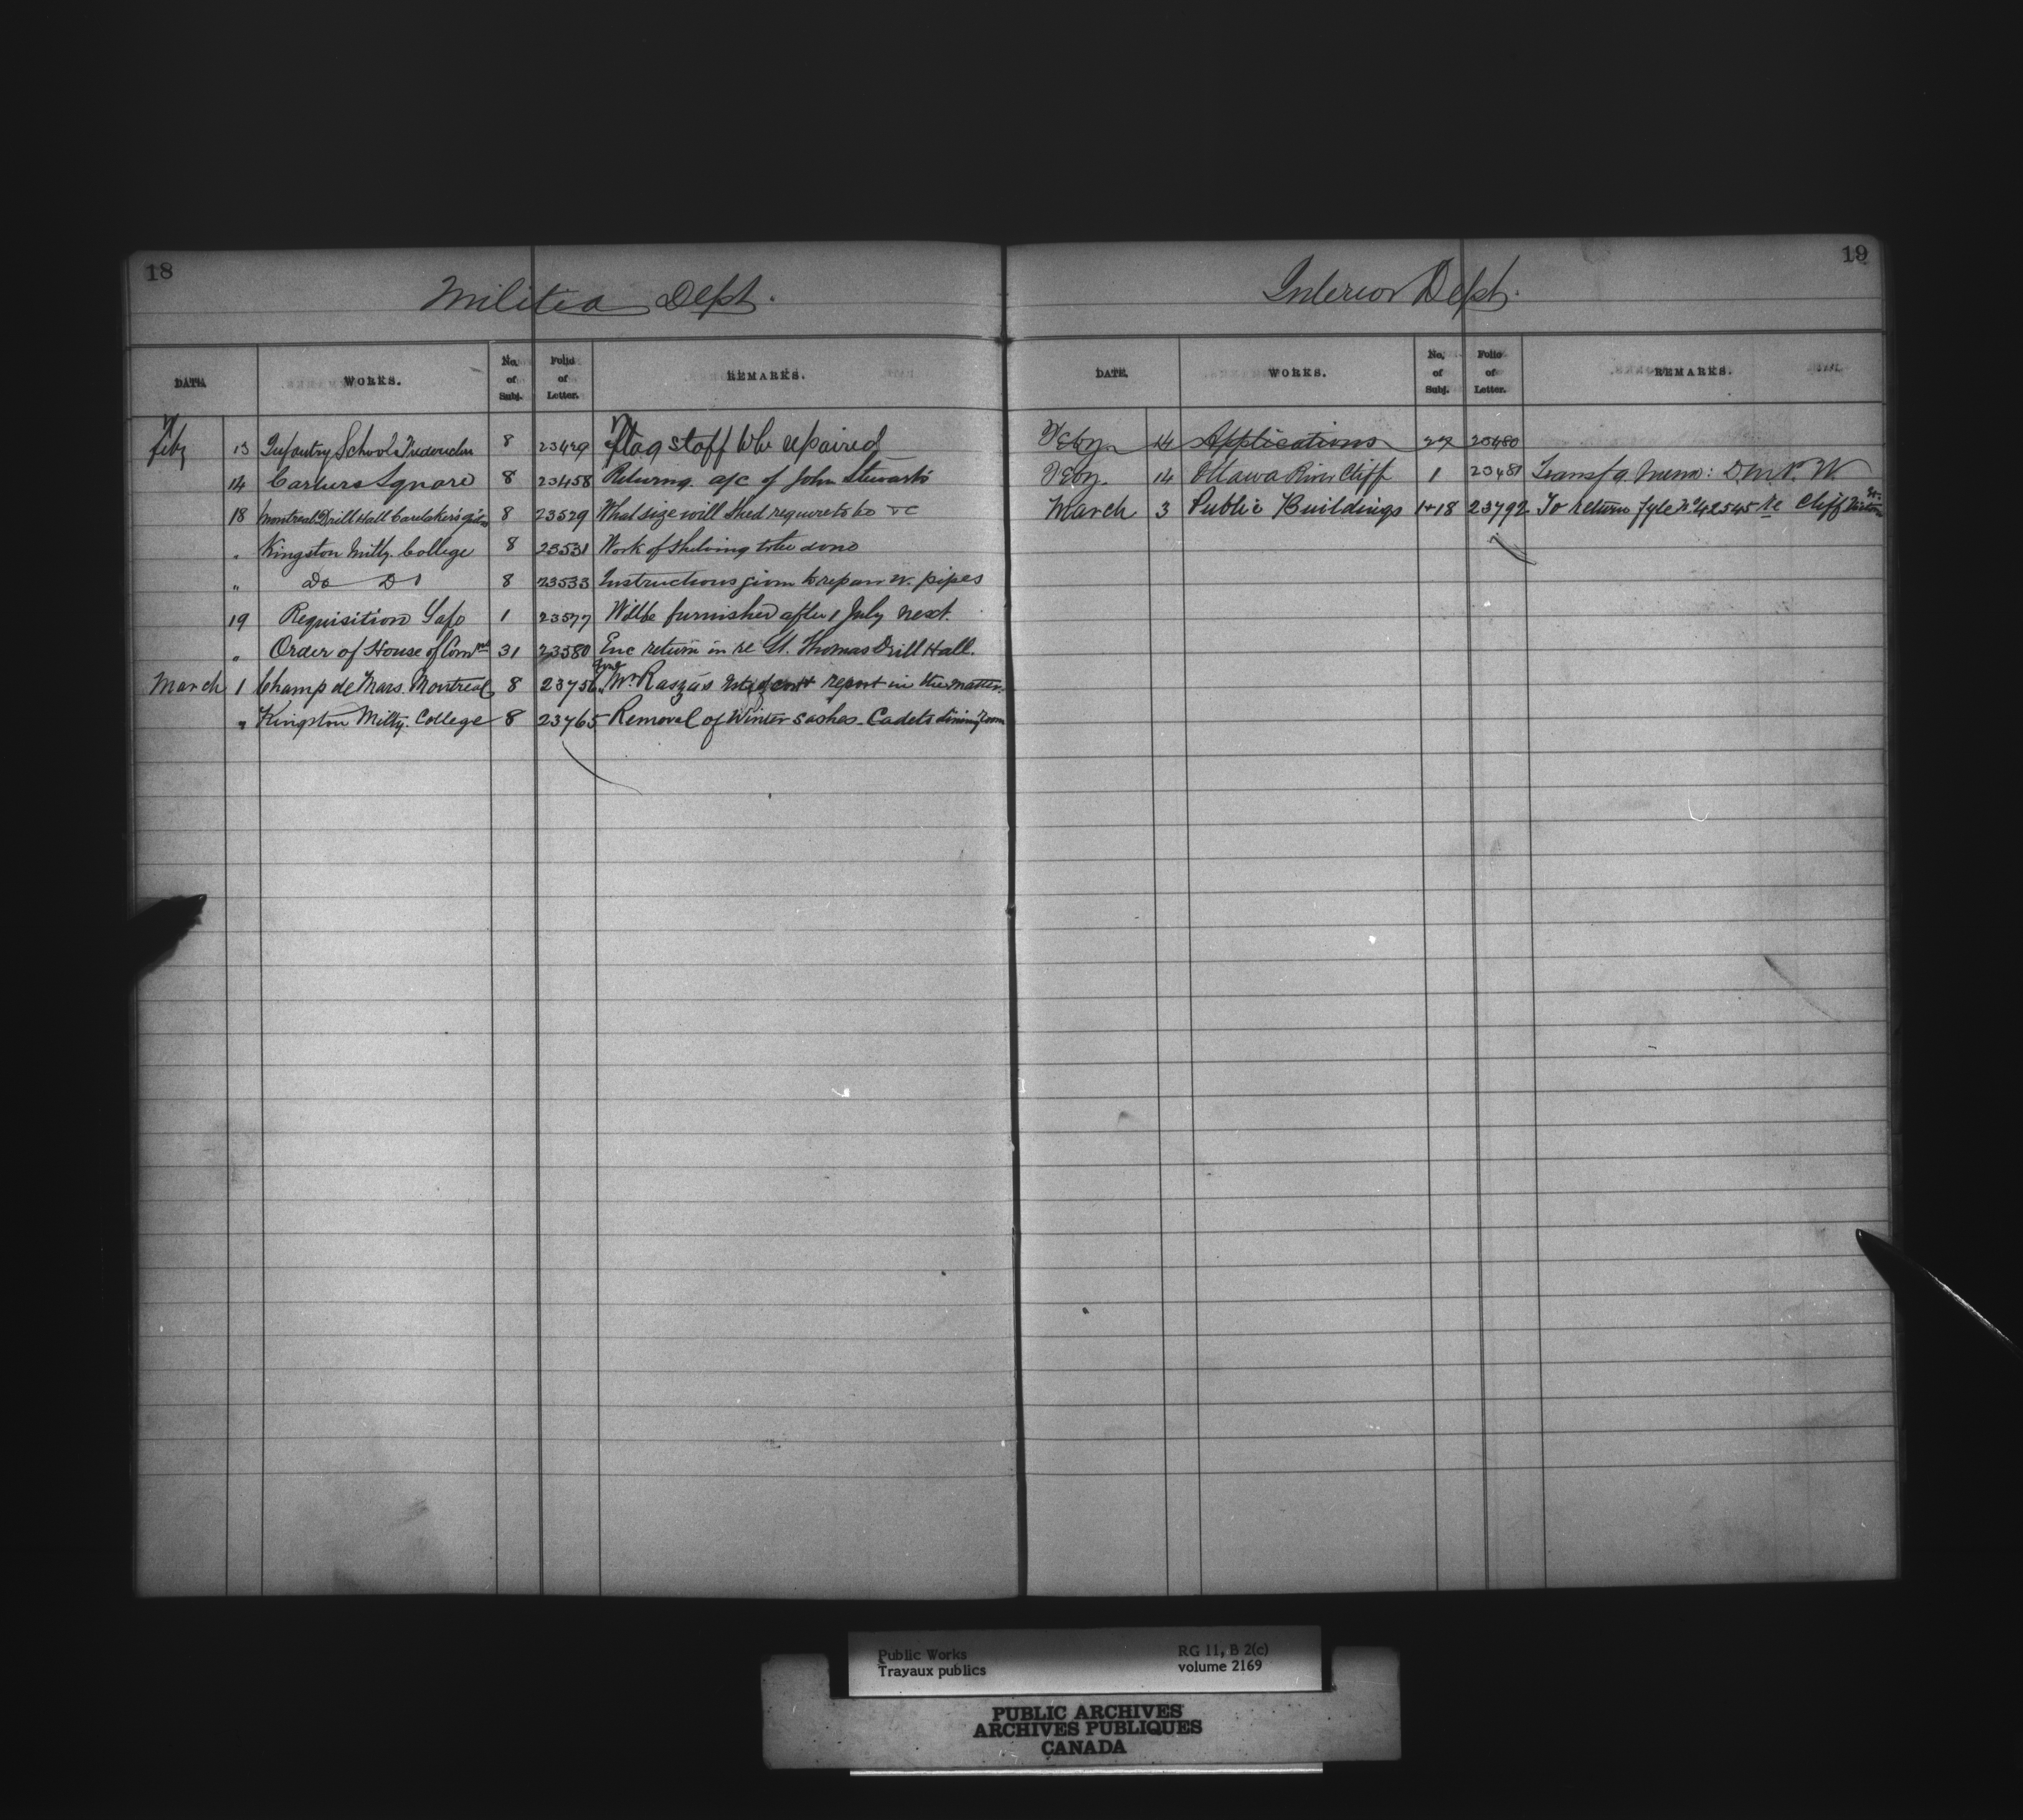 18
Militia Dept.
DATE. WORKS. No. of Subj. Folio of Letter. REMARKS.
Feby 13 Infantry School Fredericton 8 23429 Flag staff to be repaired
14 Cartiers Square 8 23458 Returng. a/c of John Stewarts
18 Montreal Drill Hall Caretaker's 8 23529 What size will shed require to be &c
" Kingston Milty. College 8 23531 Work of shelving to be done
" Do Do 8 23533 Instructions given to repair w. pipes
19 Requisition Safe 1 23577 Will be furnished after 1 July next.
" Order of House of Comns 31 23580 Enc return in re St. Thomas Drill Hall.
March 1 Champ de Mars Montreal 8 23756 Mr report in the matter.
" Kingston Milty. College 8 23765 Removal of Winter sashes - Cadets dining room
19
Interior Dept.
DATE. WORKS. No. of Subj. Folio of Letter. REMARKS.
Feby. 14 Applications 27 23480
Feby. 14 Ottawa River Cliff 1 23481 Transf g Memo: D.M.P.W.
March 3 Public Buildings 1+18 23792 To return fyle No. 42545 re Cliff
Public Works RG 11, B 2(c)
Travaux publics volume 2169
PUBLIC ARCHIVES
ARCHIVES PUBLIQUES
CANADA